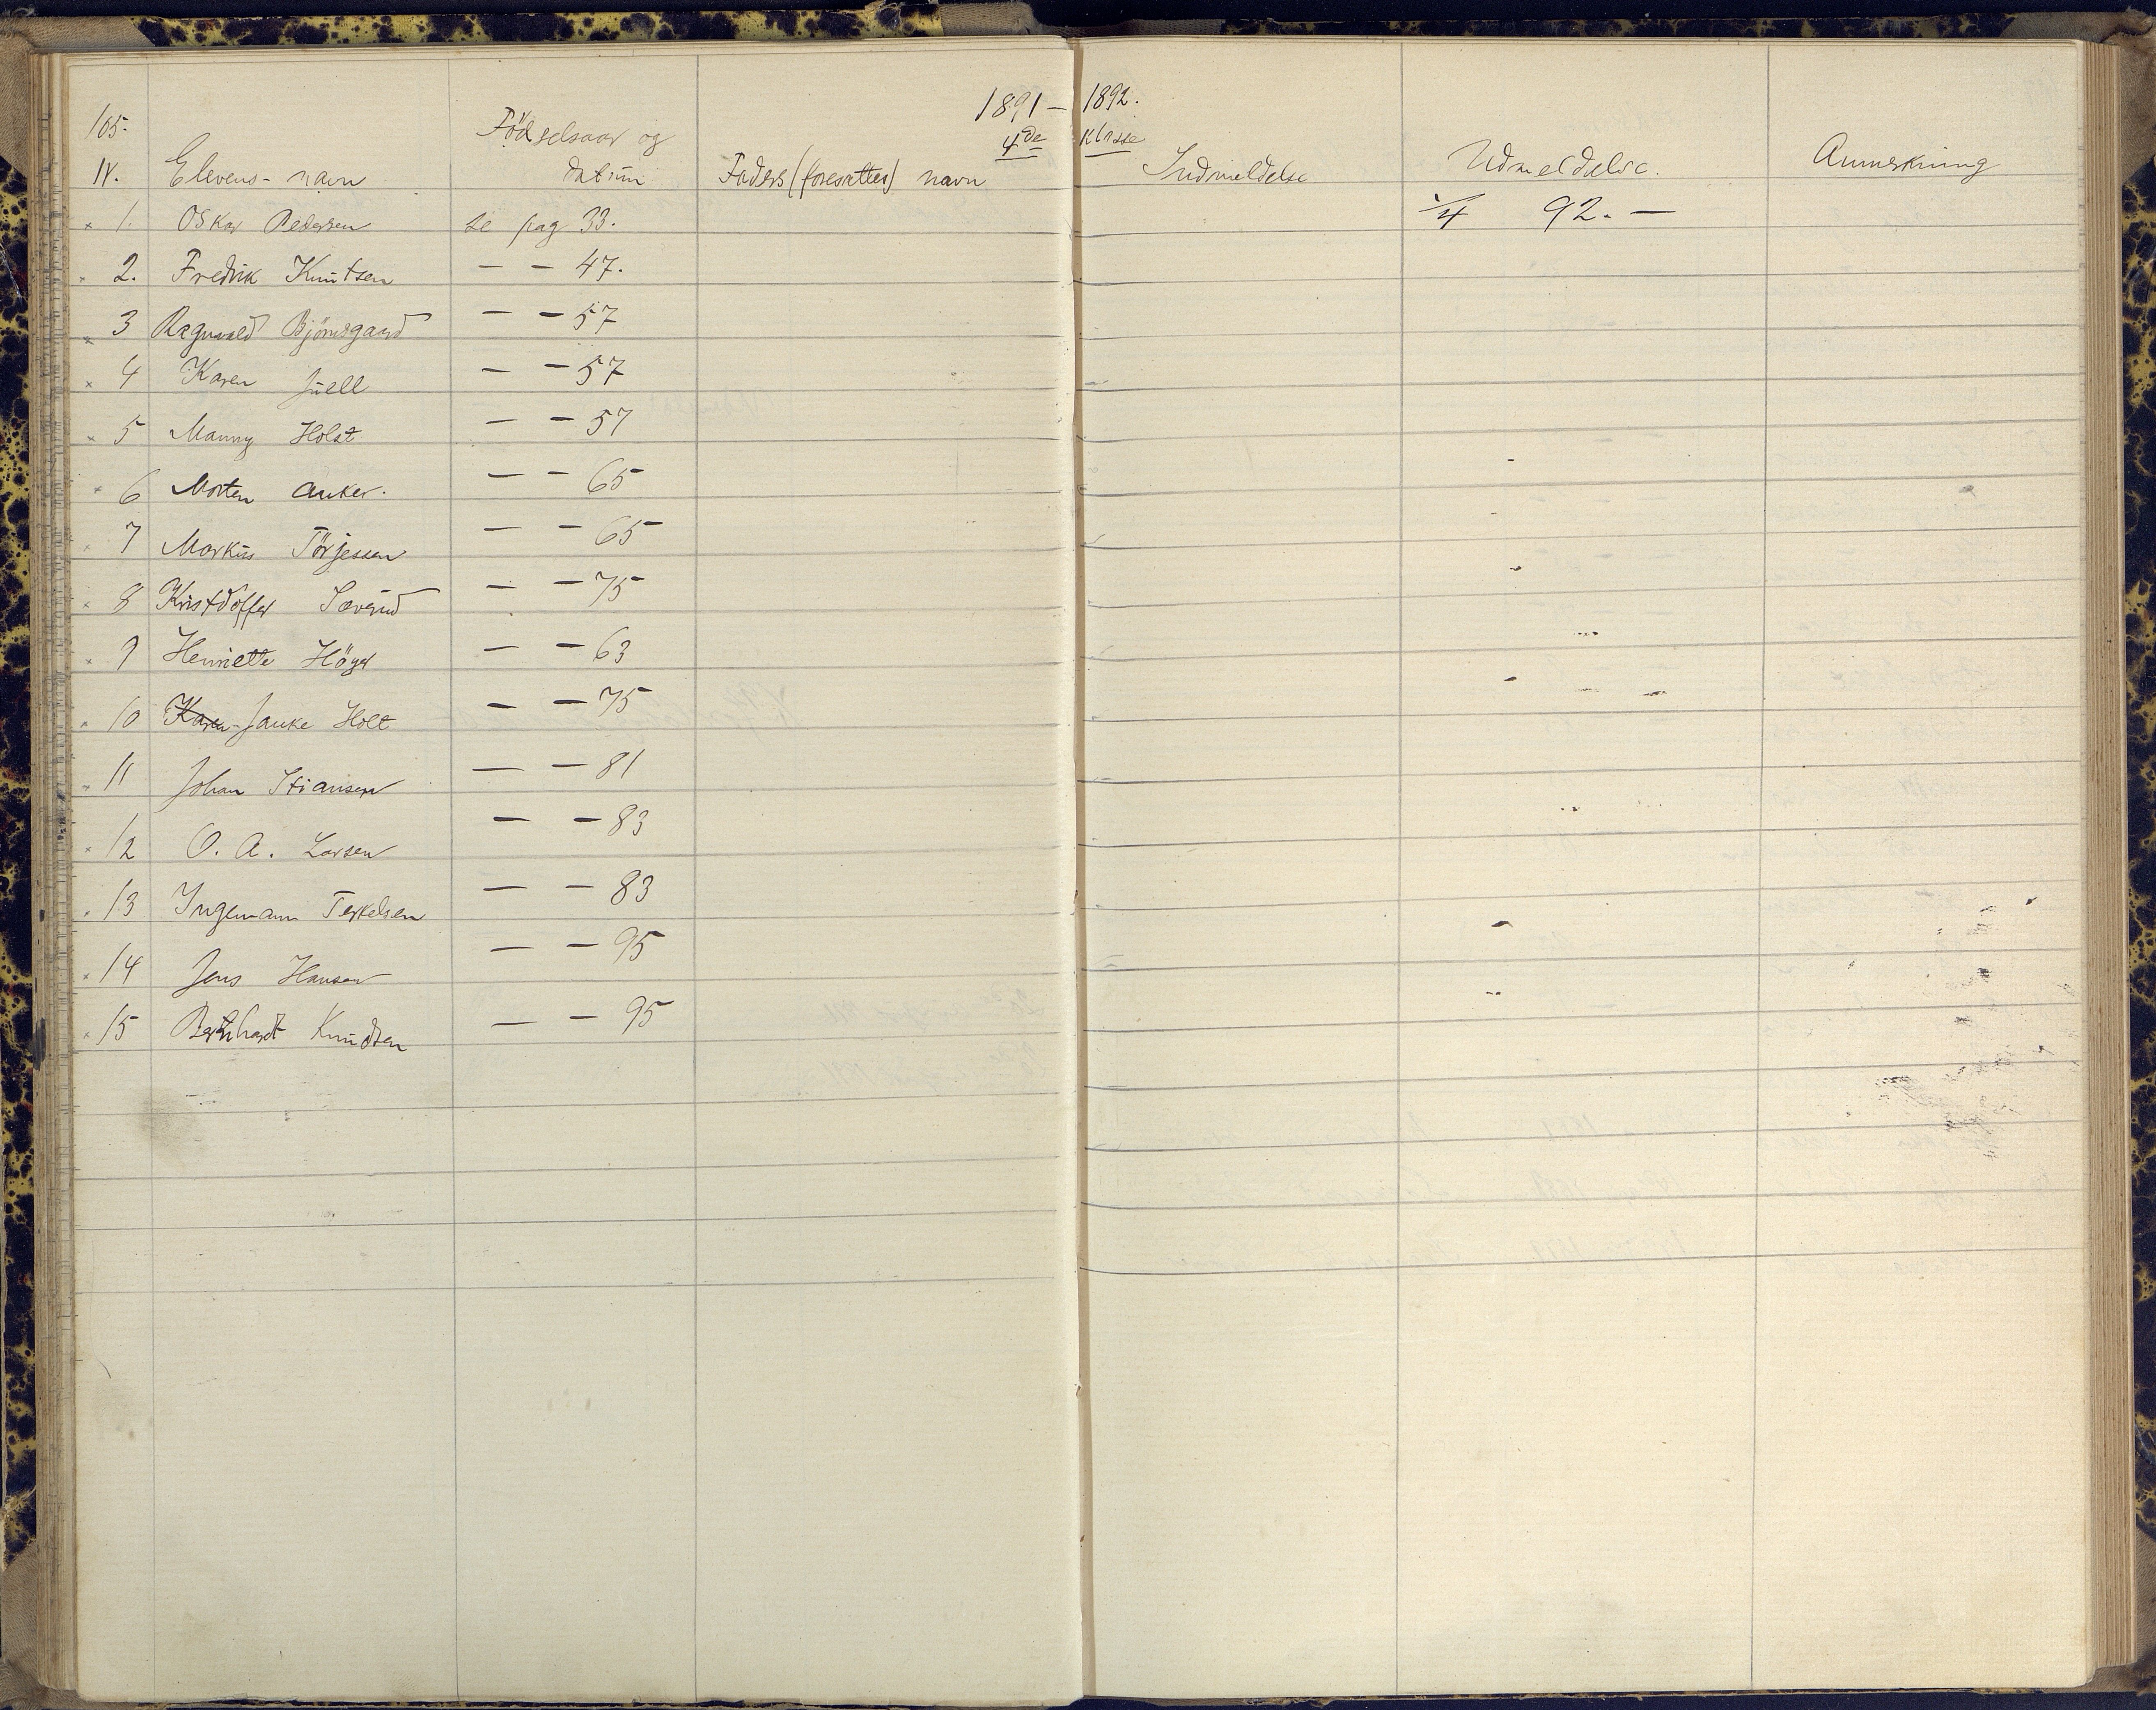 1891 — 1892.
105.
4de Klasse
Födselsaar og
N. Elevens navn datum Faders (foresattes) navn Indmeldelse Udmeldelse. Anmerkning
× 1. Oskar Pedersen se pag 33. 1/4 92. —
× 2. Fredrik Knutsen — — 47.
× 3 Ragnvald Bjørnsgaard — — 57
× 4 Karen Juell — — 57
× 5 Manny Holst — — 57
× 6 Morten Anker. — — 65
× 7 Markus Törjessen — — 65
× 8 Kristoffer — — 75
× 9 Henriette Höyer — — 63
× 10 Karen Janke Holt — — 75
× 11 Johan Stiansen — — 81
× 12 O. A. Larsen — — 83
× 13 Ingemann Terkelsen — — 83
× 14 Jens Hansen — — 95
× 15 Bernhardt Knudsen — — 95